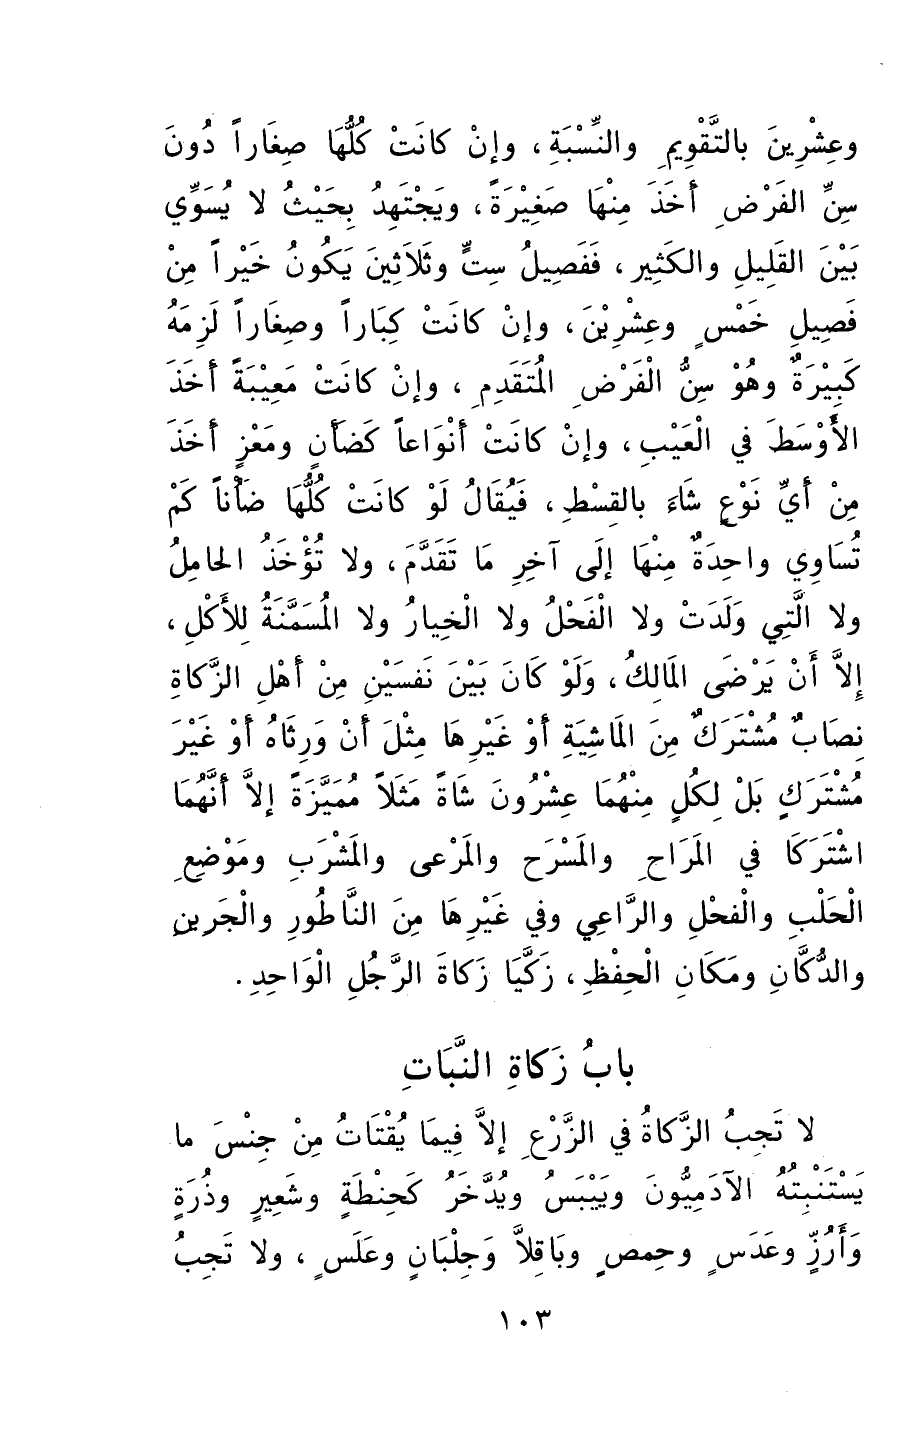 وعِشْرِينَ بالتَّقْوِيمِ والنِّسْبَةِ، وإنْ كانَتْ كُلُّهَا صِغَاراً دُونَ
سِنِّ الفَرْضِ أَخَذَ مِنْهَا صَغِيْرَةً، ويَجْتَهِدُ بِحَيْثُ لا يُسَوِّي
بَيْنَ القَلِيلِ والكَثِيرِ، فَفَصِيلُ سِتٍّ وثَلاثِينَ يَكُونُ خَيْراً مِنْ
فَصِيلِ خَمْسٍ وعِشْرِيْنَ، وإنْ كانَتْ كِبَاراً وصِغَاراً لَزِمَهُ
كَبِيْرَةٌ وهُوْ سِنُّ الْفَرْضِ المُتَقَدِمِ، وإنْ كانَتْ مَعِيْبَةً أَخَذَ
الأَوْسَطَ في الْعَيْبِ، وإنْ كانَتْ أَنْوَاعاً كَضَأْنٍ ومَعْزٍ أَخَذَ
مِنْ أَيِّ نَوْعٍ شَاءَ بالقِسْطِ، فَيُقَالُ لَوْ كانَتْ كُلُّهَا ضَأْناً كَمْ
تُسَاوِي واحِدَةٌ مِنْهَا إلَى آخِرِ مَا تَقَدَّمَ، ولا تُؤْخَذُ الحامِلُ
ولا الَّتِي وَلَدَتْ ولا الْفَحْلُ ولا الْخِيارُ ولا المُسَمَّنَةُ لِلأَكْلِ،
إِلاَّ أَنْ يَرْضَى المَالِكُ، وَلَوْ كَانَ بَيْنَ نَفسَيْنِ مِنْ أَهْلِ الزَّكاةِ
نِصَابٌ مُشْتَرَكٌ مِنَ المَاشِيَةِ أَوْ غَيْرِهَا مِثْلَ أَنْ وَرِثَاهُ أَوْ غَيْرَ
مُشْتَرَكٍ بَلْ لِكُلٍ مِنْهُمَا عِشْرُونَ شَاةً مَثَلاً مُمَيَّزَةً إلاَّ أَنَّهُمَا
اشْتَرَكَا في المَرَاحِ والمَسْرَح والمَرْعى والمَشْرَبِ ومَوْضِعِ
الْحَلْبِ والْفحْلِ والرَّاعِي وفي غَيْرِهَا مِنَ النَّاطُورِ والْجَرِينِ
والدُّكَّانِ ومَكَانِ الْحِفْظِ، زَكَّيَا زَكاةَ الرَّجُلِ الْوَاحِدِ.
بابُ زَكاةِ النَّبَاتِ
لا تَجِبُ الزَّكاةُ في الزَّرْعِ إلاَّ فِيمَا يُقْتَاتُ مِنْ جِنْسِ ما
يَسْتَنْبِتُهُ الآدَمِيُّونَ ويَيْبَسُ ويُدَّخَرُ كَحِنْطَةٍ وشَعِيرٍ وذُرَةٍ
وَأَرُزٍّ وعَدَسٍ وحِمصٍ وبَاقِلاَّ وَجِلْبَانٍ وعَلَسٍ، ولا تَجِبُ
١٠٣